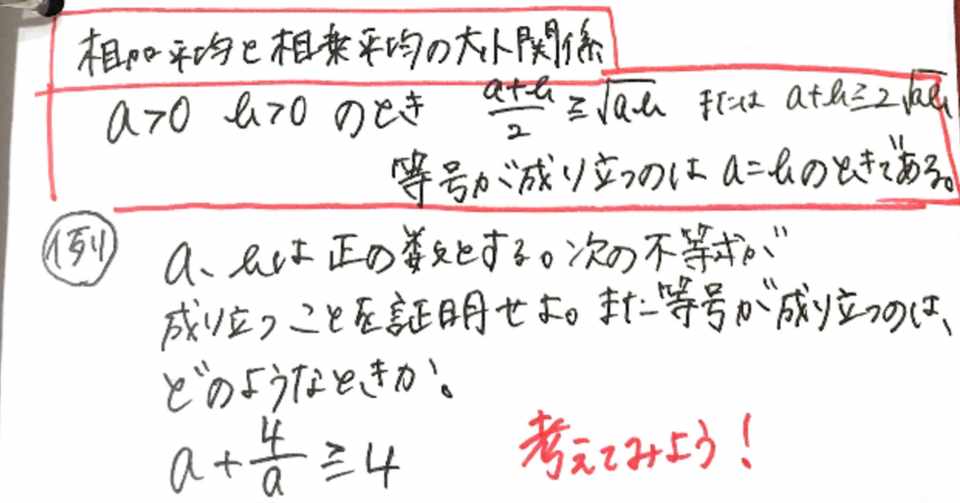 相加平均と相乗平均の大小関係
a>0 b>0 のとき (a+b)/2 ≧ √ab または a+b≧2√ab
等号が成り立つのは a=bのときである。
例 a、bは正の数とする。次の不等式が
成り立つことを証明せよ。また等号が成り立つのは、
どのようなときか。
a+4/a≧4 考えてみよう!